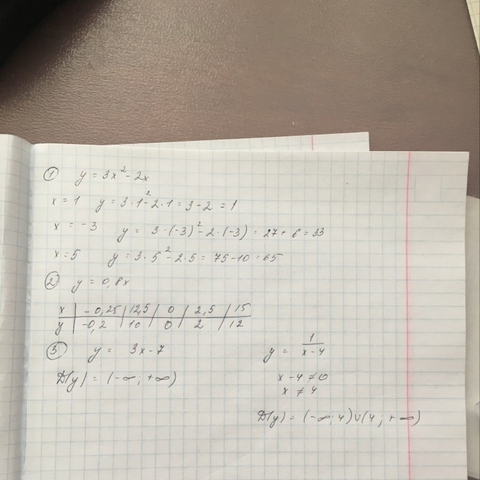 ① y = 3x² - 2x
x = 1 y = 3·1² - 2·1 = 3 - 2 = 1
x = -3 y = 3·(-3)² - 2·(-3) = 27 + 6 = 33
x = 5 y = 3·5² - 2·5 = 75 - 10 = 65
② y = 0,8x
x | -0,25 | 12,5 | 0 | 2,5 | 15
y | -0,2 | 10 | 0 | 2 | 12
③ y = 3x - 7
D(y) = (-∞; +∞)
y = 1/(x - 4)
x - 4 ≠ 0
x ≠ 4
D(y) = (-∞; 4) ∪ (4; +∞)